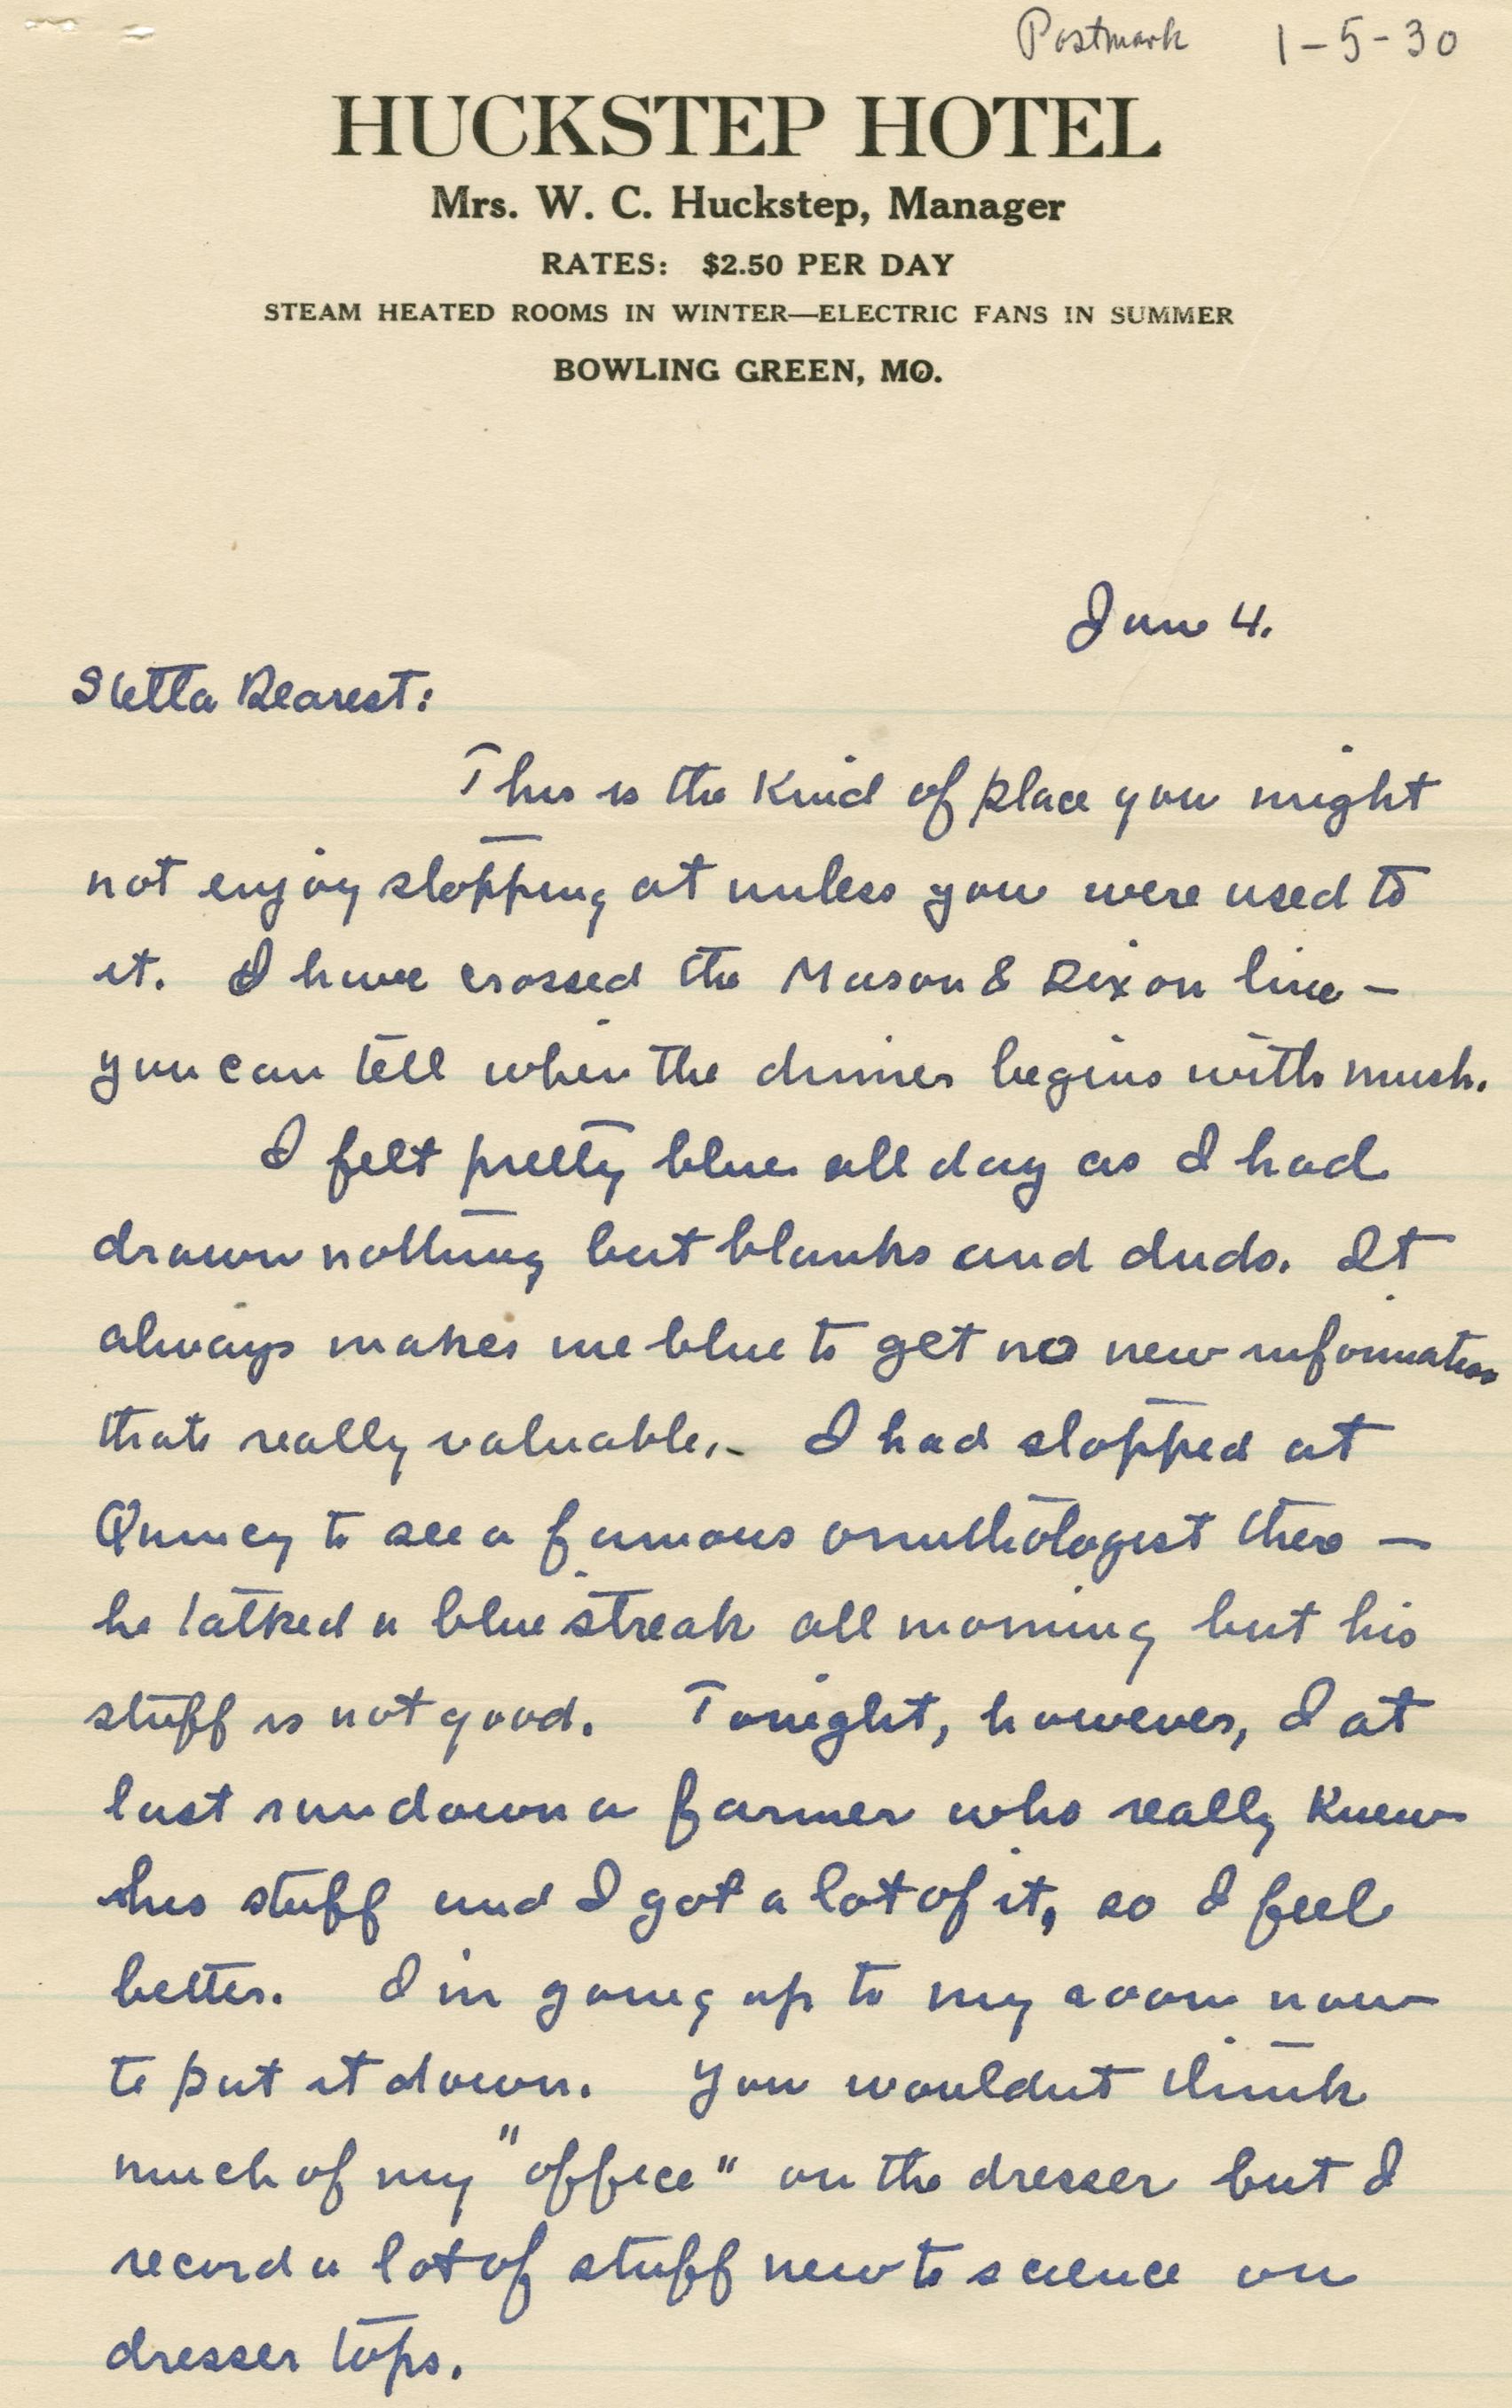 Postmark 1-5-30
HUCKSTEP HOTEL
Mrs. W. C. Huckstep, Manager
RATES: $2.50 PER DAY
STEAM HEATED ROOMS IN WINTER—ELECTRIC FANS IN SUMMER
BOWLING GREEN, MO.
Jan 4.
Dearest:
This is the kind of place you might
not enjoy stopping at unless you were used to
it. I have crossed the Mason & Dixon line –
you can tell when the dinner begins with mush.
I felt pretty blue all day as I had
drawn nothing but blanks and duds. It
always makes me blue to get no new information
thats really valuable. – I had stopped at
Quincy to see a famous ornithologist there –
he talked a blue streak all morning but his
stuff is not good. Tonight, however, I at
last run down a farmer who really knew
his stuff and I got a lot of it, so I feel
better. I'm going up to my room now
to put it down. You wouldnt think
much of my "office" on the dresser but I
record a lot of stuff new to science on
dresser tops.